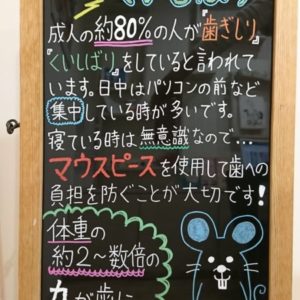 成人の約80%の人が『歯ぎしり』
『くいしばり』をしていると言われて
います。日中はパソコンの前など
集中している時が多いです。
寝ている時は無意識なので…
マウスピースを使用して歯への
負担を防ぐことが大切です!
体重の
約2〜数倍の
力が歯に